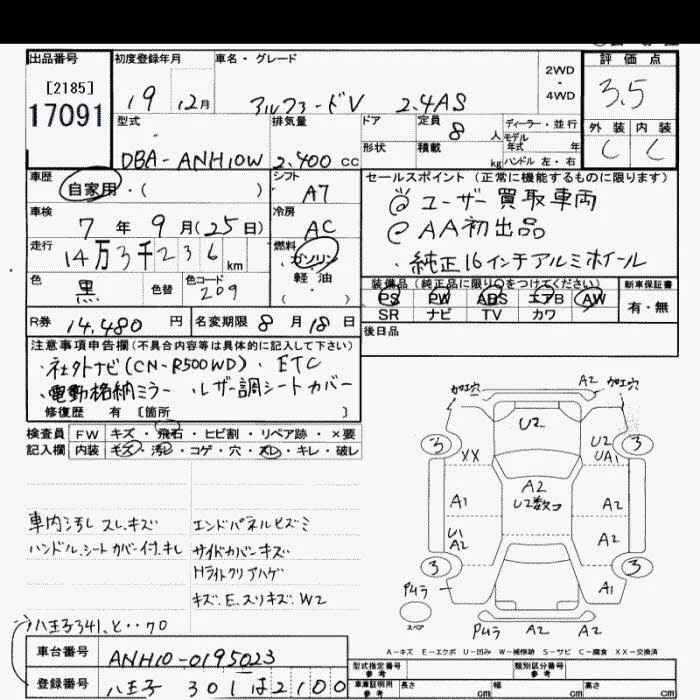 出品番号 初度登録年月 車名・グレード 評価点
[2185]
17091
19 12月 アルファードV 2.4AS 2WD・4WD 3.5
型式 排気量 ドア 定員 8人 ディーラー・並行 外装 内装
モデル年式 年
DBA-ANH10W 2.400cc 形状 積載 kg ハンドル 左・右 C C
車歴 シフト セールスポイント(正常に機能するものに限ります)
自家用・( ) A7 @ ユーザー買取車両
車検 冷房 @ AA初出品
7年9月(25日) AC ・純正16インチアルミホイール
走行 燃料
14万3千236km ガソリン
軽油
( )
色 色替 色コード 装備品(純正品に限り○をつけてください) 新車保証書
黒 209 PS PW ABS エアB AW 有・無
SR ナビ TV カワ
R券 14,480円 名変期限 8月18日 後日品
注意事項申告欄(不具合内容等は具体的に記入して下さい)
・社外ナビ(CN-R500WD)・ETC
・電動格納ミラー ・レザー調シートカバー
修復歴 有 [箇所 ]
検査員 FW キズ・飛石・ヒビ割・リペア跡・×要
記入欄 内装 キズ・汚レ・コゲ・穴・スレ・キレ・破レ
加工穴 A2 加工穴
U2
3 U2 3
XX UA1
A2
A1 U2数コ A2
U1
A2 A2
3 3
Pムラ A1
スペア Pムラ A2 A2
車内汚レ スレ.キズ エンドパネルヒズミ
ハンドル.シートカバー付.キレ サイドカバーキズ
Hライトクリアハゲ
キズ.E.スリキズ.W2
A-キズ E-エクボ U-凹み W-補修跡 S-サビ C-腐食 XX-交換済
八王子341.と・・70
車台番号 ANH10-0195023 型式指定番号 参考 類別区分番号 参考
登録番号 八王子 301 は 2100 車庫証明用 参考 長さ cm 幅 cm 高さ cm